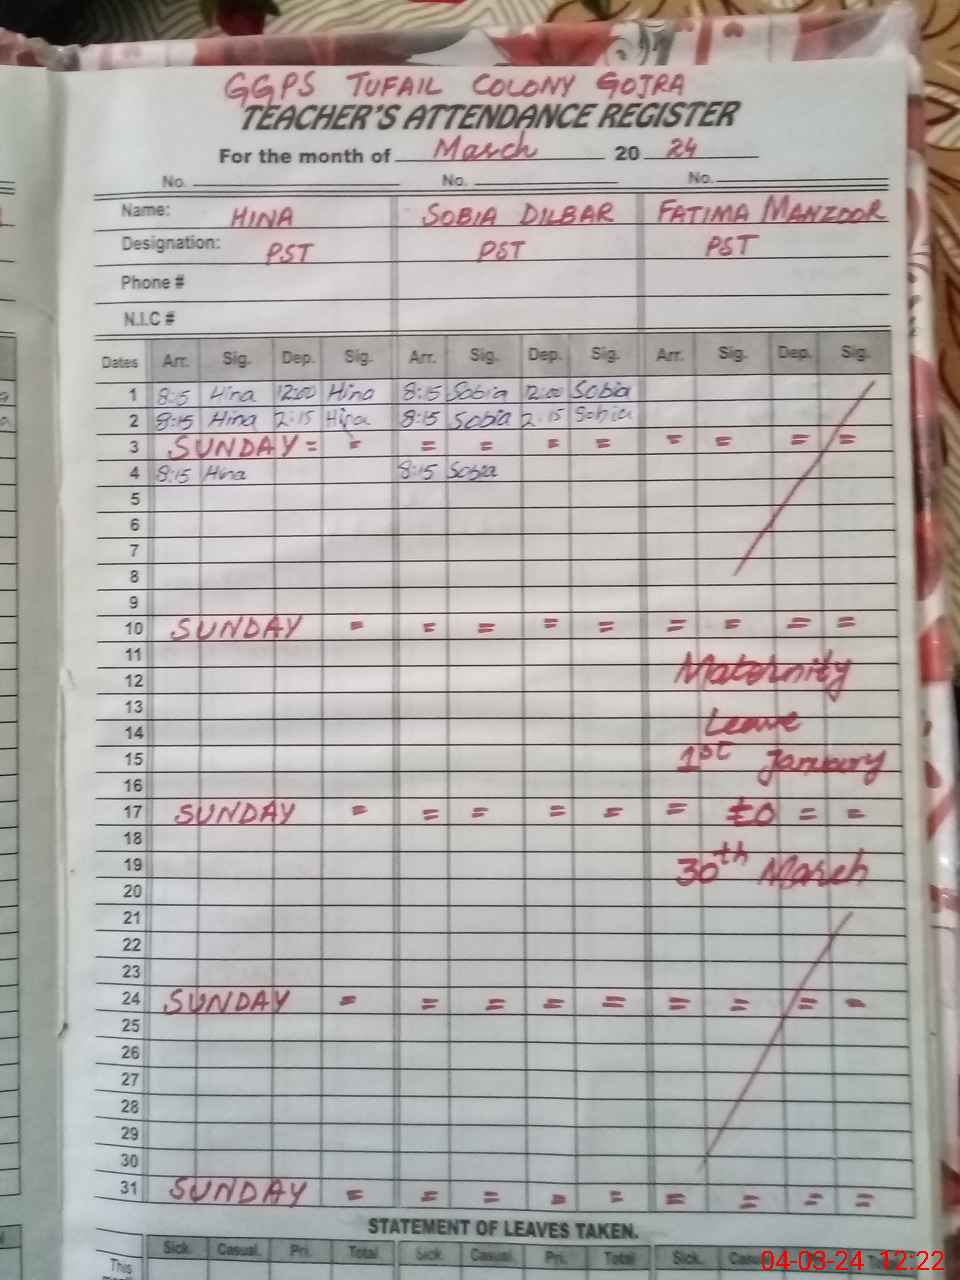 GGPS TUFAIL COLONY GOJRA
TEACHER'S ATTENDANCE REGISTER
For the month of March 20 24
No. No. No.
Name: HINA SOBIA DILBAR FATIMA MANZOOR
Designation: PST PST PST
Phone #
N.I.C #
Dates Arr. Sig. Dep. Sig. Arr. Sig. Dep. Sig. Arr. Sig. Dep. Sig.
1 8:5 Hina 12:00 Hina 8:15 Sobia 12:00 Sobia
2 8:15 Hina 2:15 Hina 8:15 Sobia 2:15 Sobia
3 SUNDAY = = = = = = = = = =
4 8:15 Hina 8:15 Sobia
5
6
7
8
9
10 SUNDAY = = = = = = = = =
11
12 Maternity
13
14 Leave
15 1st January
16
17 SUNDAY = = = = = = to = =
18
19 30th March
20
21
22
23
24 SUNDAY = = = = = = = = =
25
26
27
28
29
30
31 SUNDAY = = = = = = = = =
STATEMENT OF LEAVES TAKEN.
Sick. Casual. Pri. Total Sick. Casual. Pri. Total Sick.
This
04-03-24 12:22